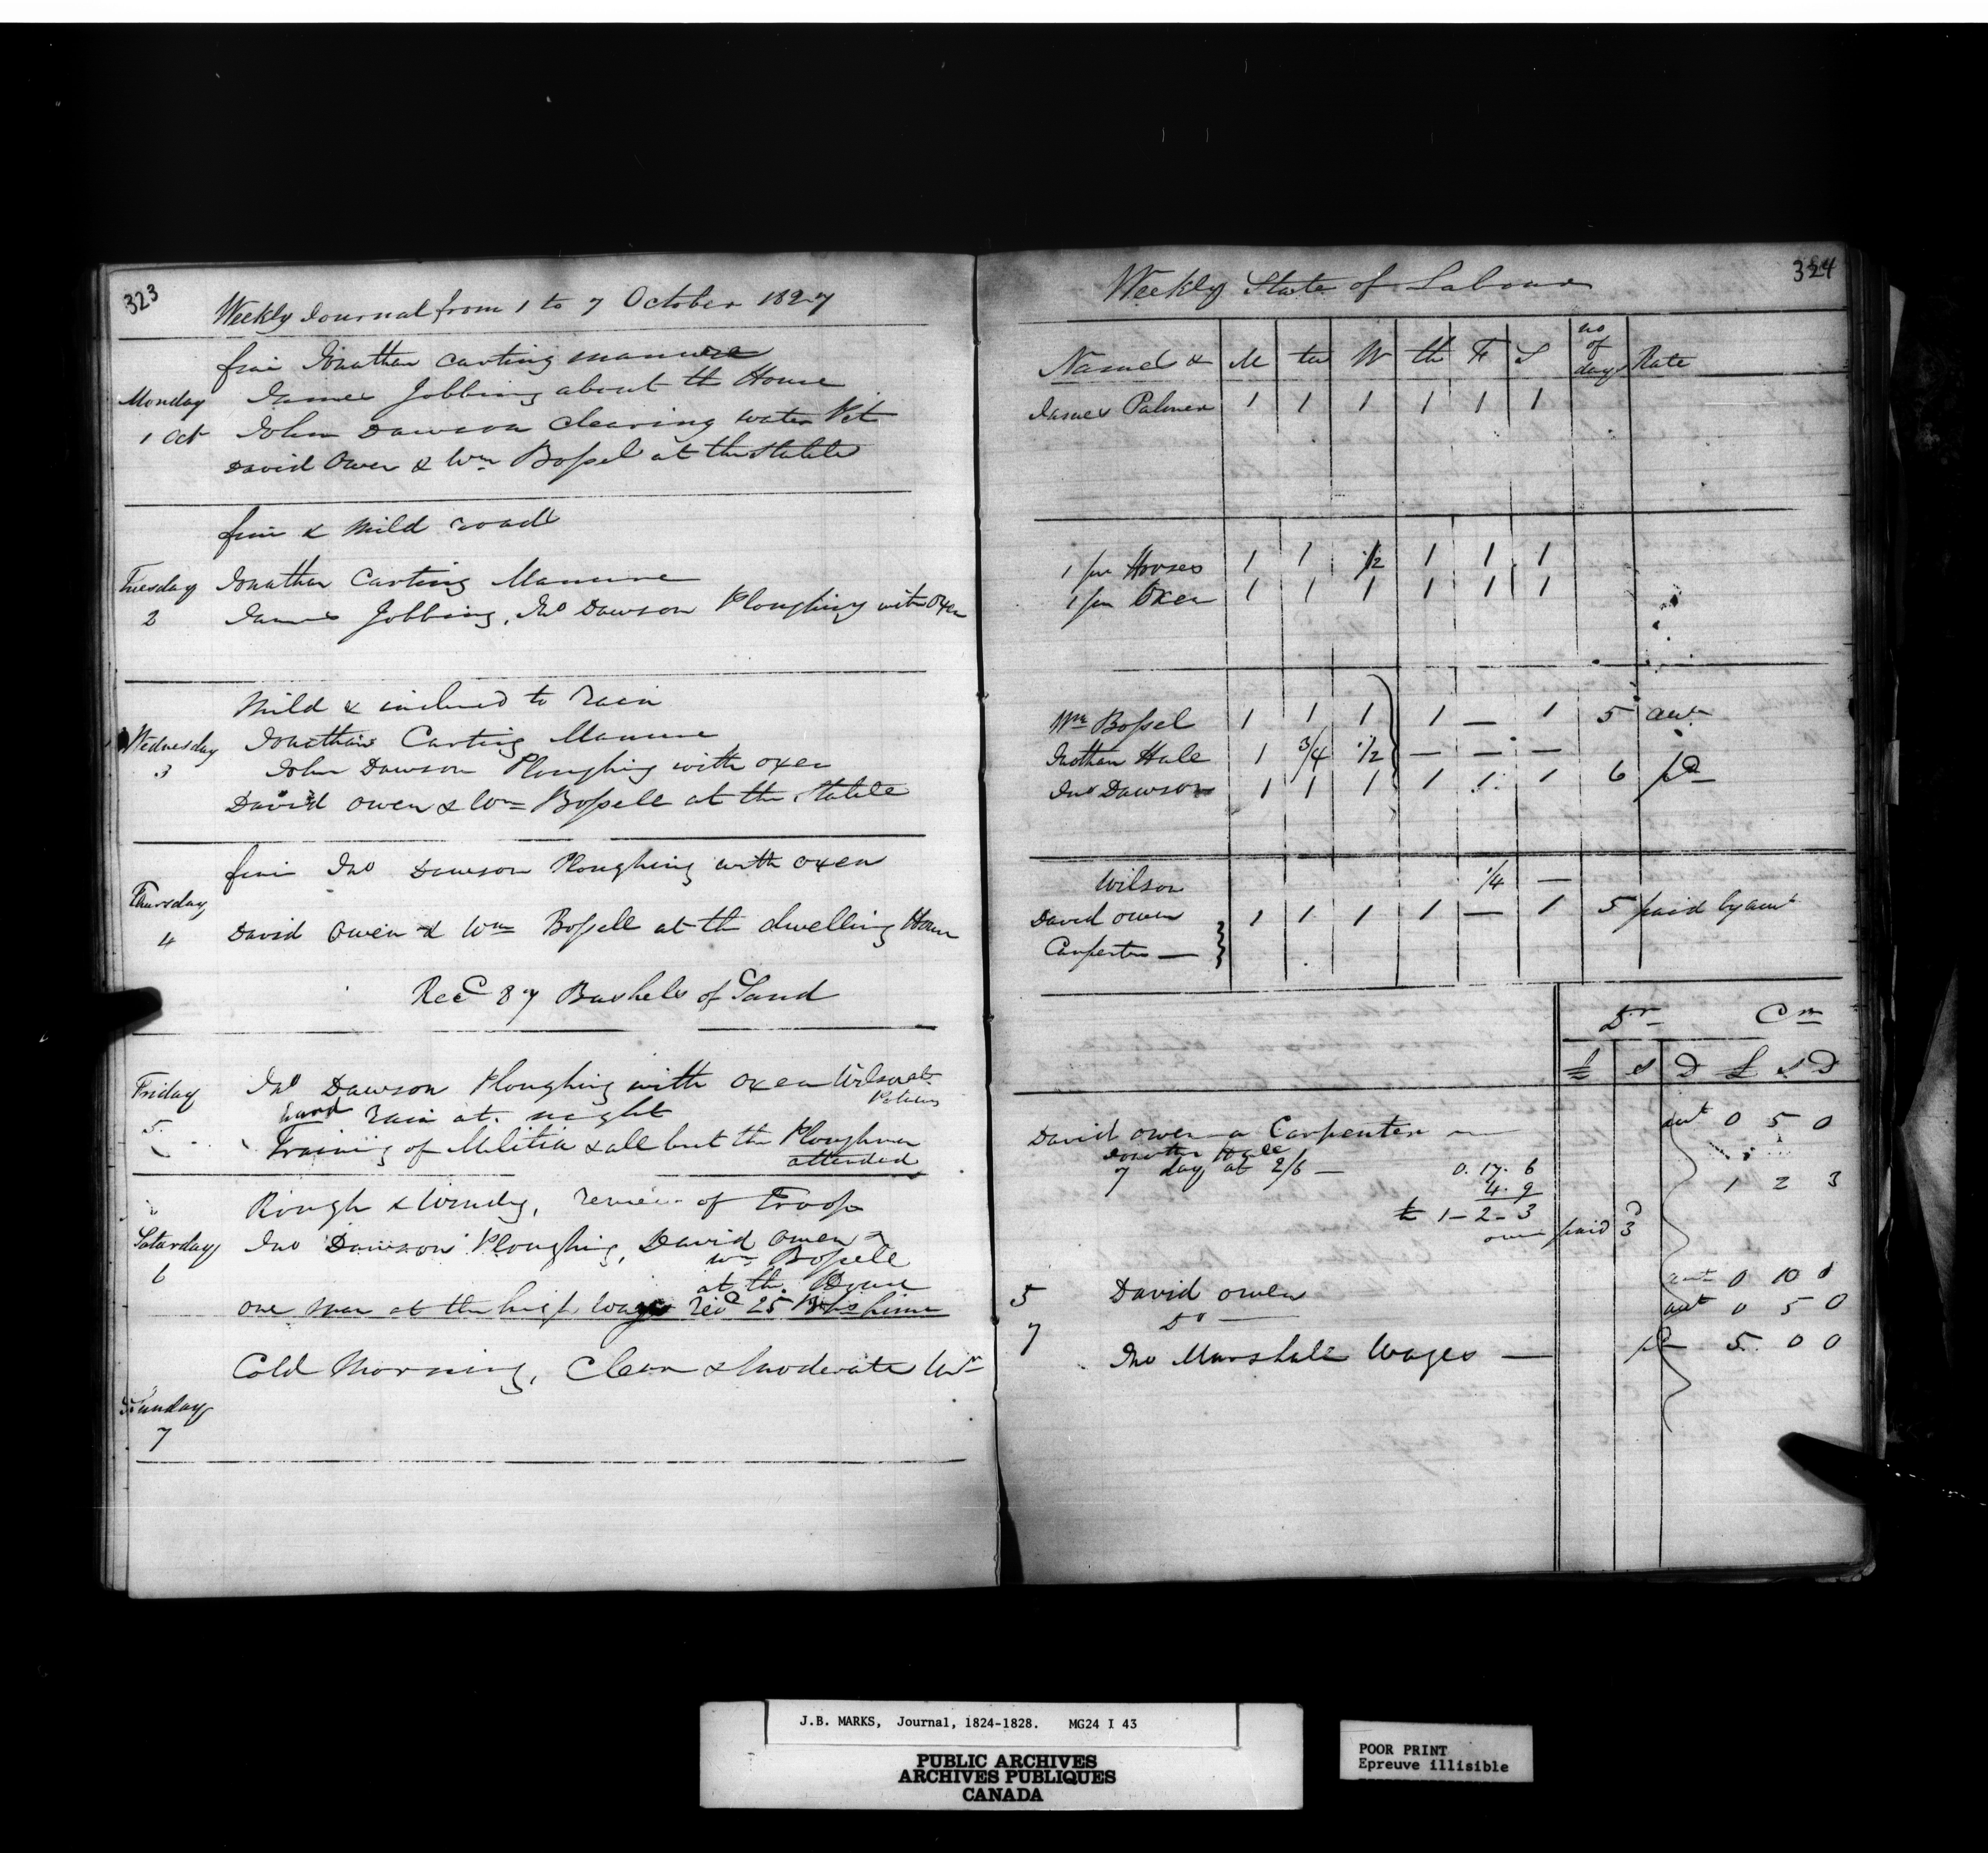 323
Weekly Journal from 1 to 7 October 1827
Monday
1 Oct
fine Jonathan Carting manure
James Jobbing about the House
John Dawson Clearing water Pit
David Owen & Wm Bossel at the Stable
fine & Mild roads
Tuesday
2
Jonathan Carting Manure
James Jobbing, Jno Dawson Ploughing with Oxen
Wednesday
3
Mild & inclined to rain
Jonathan Carting Manure
John Dawson Ploughing with oxen
David Owen & Wm Bossell at the Stable
Thursday
4
fine Jno Dawson Ploughing with oxen
David Owen & Wm Bossell at the dwelling House
Recd 87 Bushels of Sand
Friday
5
Jno Dawson Ploughing with Oxen Wilson at
hard rain at night
Training of Militia & all but the Ploughman
attended
Saturday
6
Rough & Windy, review of Troop
Jno Dawson Ploughing, David Owen &
Wm Bossell
at the House
one man at the high wages recd 25 Bus lime
Sunday
7
Cold Morning, Clear & Moderate Wr
324
Weekly State of Labour
Names & M tu W th F S no of days Rate
James Palmer 1 1 1 1 1 1
1 pr Horses 1 1 1/2 1 1 1
1 pr Oxen 1 1 1 1 1 1
Wm Bossel 1 1 1 1 — 1 5 act
Jnothan Hale 1 3/4 1/2 — — —
Jno Dawson 1 1 1 1 1 1 6 pd
Wilson 1/4 —
David Owen 1 1 1 1 — 1 5 paid by acct
Carpenter —
Dr Cr
£ s D £ s D
David Owen a Carpenter — act 0 5 0
Jonathn Hale
7 day at 2/6 — 0. 17. 6
4. 9
£ 1 – 2 – 3 1 2 3
over paid 3
5 David Owen act 0 10 0
Do — act 0 5 0
7 Jno Marshall Wages — pd 5. 0 0
J.B. MARKS, Journal, 1824-1828. MG24 I 43
PUBLIC ARCHIVES
ARCHIVES PUBLIQUES
CANADA
POOR PRINT
Epreuve illisible